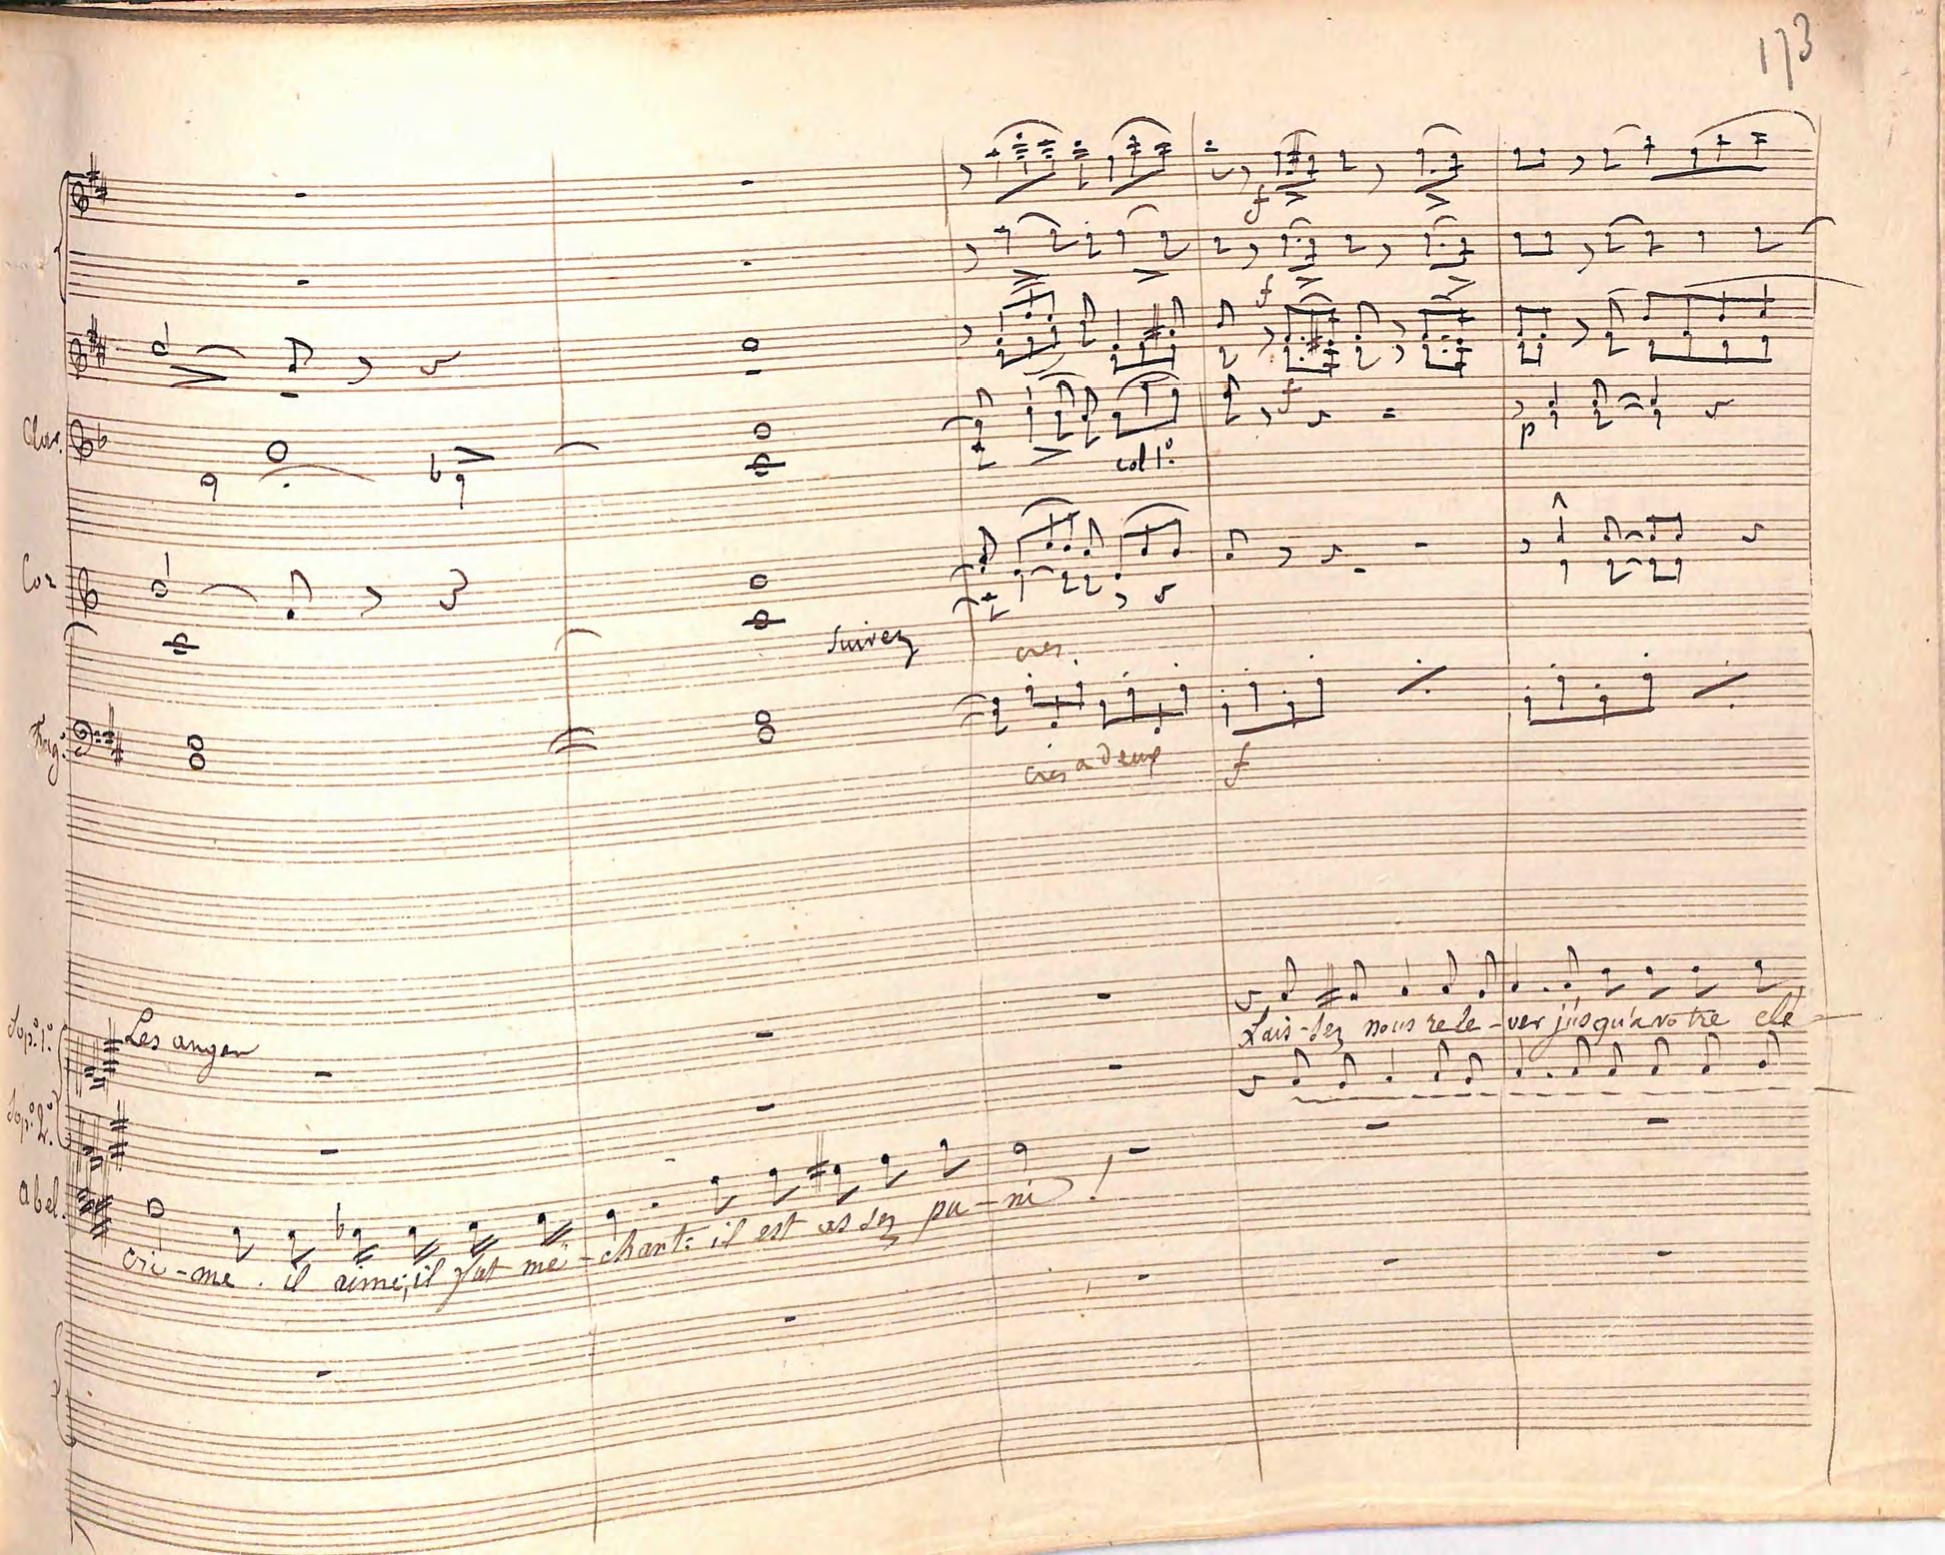 173
f
f
f
Clar.
p
col 1º.
Cor
Suivez
cres
Fag:
cres a deux
f
Sop:º 1º:
Les anges
Lais-sez nous rele-ver jusqu'a vo tre clé
Sop:º 2º:
abel.
cri-me. il aime; il fut mé-chant: il est as sez pu-ni!